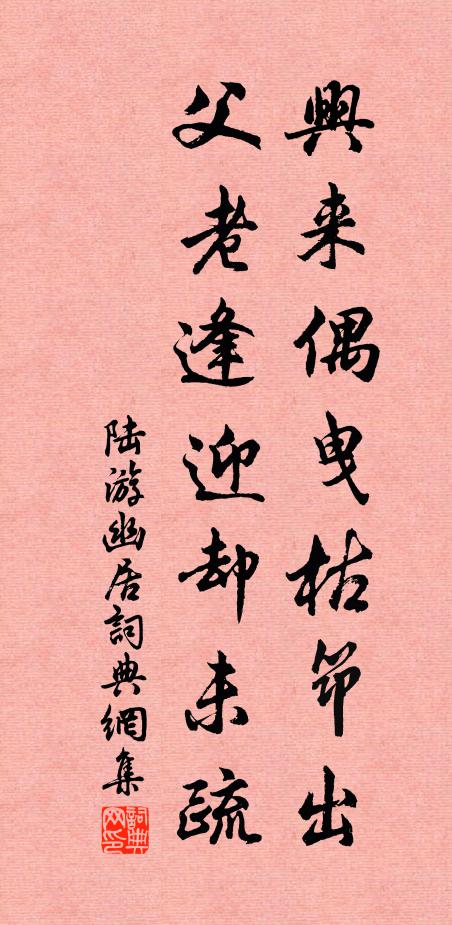 興来偶曳枯笻出
父老逢迎却未疏
陆游幽居詞典網集
詞典网印